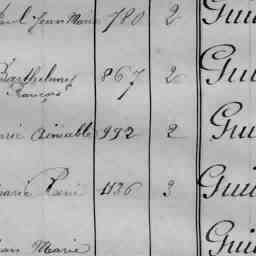 Jean Marie 780 2 Gui
Barthelmy 867 2 Gui
François
Aimable 992 2 Gui
Marie 1136 3 Gui
Jean Marie Gui